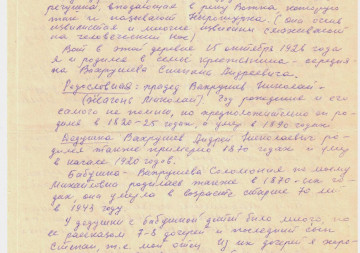 речушка, впадающая в реку Вожка которую
так и называют
извивается и
на человеческий нос)
Вот в этой деревне 15 октября 1926 года
я и родился в семье крестьянина - середня-
ка Вахрушева Степана Андреевича.
Родословная: прадед Вахрушев Николай -
Николай). Год рождения я его
самого не помню, но предположительно он ро-
дился в 1820-25 годах и умер в 1890 годах
Дедушка Вахрушев Андрей Николаевич ро-
дился также примерно в 1870 годах и умер
в начале 1920 годов.
Бабушка - Вахрушева Соломония по мужу
Михайловна родилась также в 1870-сах го-
дах, она умерла в возрасте старше 70 лет
в 1943 году
У дедушки с бабушкой детей было много, по
ее рассказам 7-8 дочерей и последний сын
Степан, т.е. мой отец. Из их дочерей я хоро-